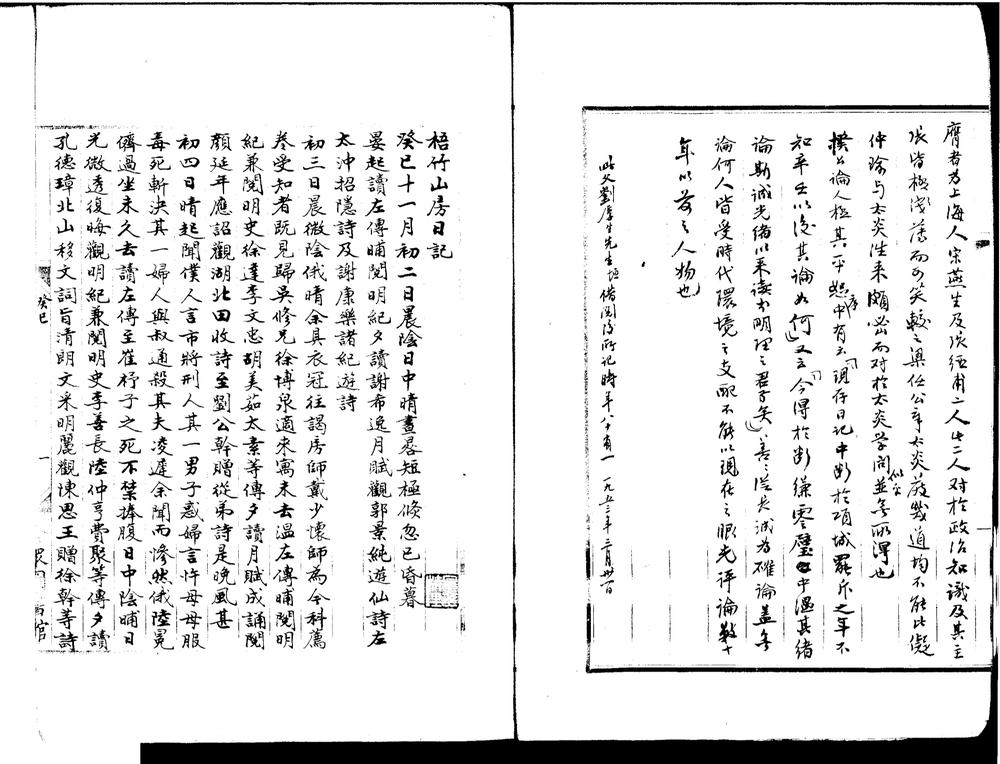 膺者为上海人宋燕生及张经甫二人此二人对於政治知識及其主
张皆極浅薄而可笑較之梁任公章太炎嚴幾道均不能比儗
仲诒与太炎往来頗密而对於太炎学问並無所渭也
似公
樸公論人極其平恕序中有云「現存日记中断於項城罷斥之年不
知辛壬以後其論如何」又云「今得於断缣零璧中溫其緒
論斯诚光绪以来读书明理之君子矣」善善從长诚为確論盖無
論何人皆受時代環境之支配不能以现在之眼光評論数十
年以前之人物也
此文劉厚生先生 借阅後所记時年八十有一 一九五三年三月卅一日
梧竹山房日記
癸巳十一月初二日晨陰日中晴晝晷短極倏忽已昏暮
晏起讀左傳晡閱明紀夕讀謝希逸月賦觀郭景純遊仙詩左
太沖招隱詩及謝康樂諸紀遊詩
初三日晨微陰俄晴余具衣冠往謁房師戴少懷師為今科薦
卷受知者既見歸吳修兄徐博泉適來寓未去溫左傳晡閱明
紀兼閱明史徐達李文忠胡美茹太素等傳夕讀月賦成誦閱
顏延年應詔觀湖北田收詩至劉公幹贈從弟詩是晚風甚
初四日晴起聞僕人言市將刑人其一男子惑婦言忤母母服
毒死斬決其一婦人與叔通殺其夫凌遲余聞而慘然俄陸冕
儕過坐未久去讀左傳至崔杼子之死不禁捧腹日中陰晡日
光微透復晦觀明紀兼閱明史李善長陸仲亨費聚等傳夕讀
孔德璋北山移文詞旨清朗文采明麗觀陳思王贈徐幹等詩
癸巳
一